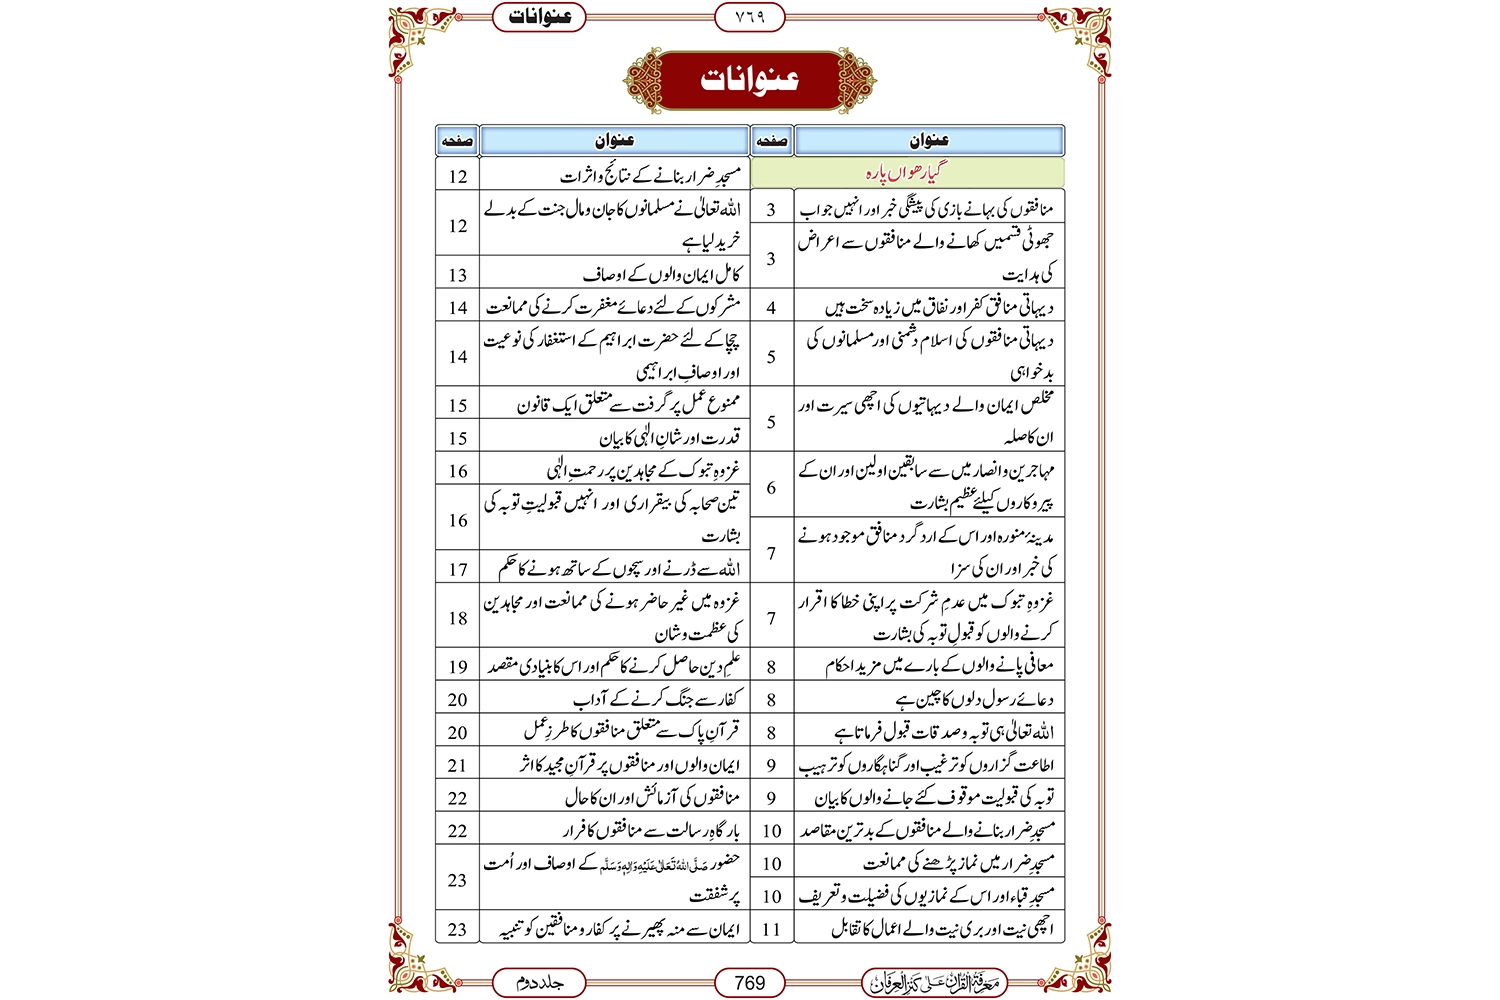 عنوانات
۷٦۹
عنوانات
عنوان
صفحہ
گیارھواں پارہ
منافقوں کی بہانے بازی کی پیشگی خبر اور انہیں جواب 3
جھوٹی قسمیں کھانے والے منافقوں سے اعراض
کی ہدایت 3
دیہاتی منافق کفر اور نفاق میں زیادہ سخت ہیں 4
دیہاتی منافقوں کی اسلام دشمنی اور مسلمانوں کی
بدخواہی 5
مخلص ایمان والے دیہاتیوں کی اچھی سیرت اور
ان کا صلہ 5
مہاجرین و انصار میں سے سابقین اولین اور ان کے
پیروکاروں کیلئے عظیم بشارت 6
مدینۂ منورہ اور اس کے ارد گرد منافق موجود ہونے
کی خبر اور ان کی سزا 7
غزوہِ تبوک میں عدمِ شرکت پر اپنی خطا کا اقرار
کرنے والوں کو قبولِ توبہ کی بشارت 7
معافی پانے والوں کے بارے میں مزید احکام 8
دعائے رسول دلوں کا چین ہے 8
اللہ تعالیٰ ہی توبہ و صدقات قبول فرماتا ہے 8
اطاعت گزاروں کو ترغیب اور گناہگاروں کو ترہیب 9
توبہ کی قبولیت موقوف کئے جانے والوں کا بیان 9
مسجدِ ضرار بنانے والے منافقوں کے بدترین مقاصد 10
مسجدِ ضرار میں نماز پڑھنے کی ممانعت 10
مسجدِ قباء اور اس کے نمازیوں کی فضیلت و تعریف 10
اچھی نیت اور بری نیت والے اعمال کا تقابل 11
عنوان
صفحہ
مسجدِ ضرار بنانے کے نتائج و اثرات 12
اللہ تعالیٰ نے مسلمانوں کا جان و مال جنت کے بدلے
خرید لیا ہے 12
کامل ایمان والوں کے اوصاف 13
مشرکوں کے لئے دعائے مغفرت کرنے کی ممانعت 14
چچا کے لئے حضرت ابراہیم کے استغفار کی نوعیت
اور اوصافِ ابراہیمی 14
ممنوع عمل پر گرفت سے متعلق ایک قانون 15
قدرت اور شانِ الٰہی کا بیان 15
غزوہِ تبوک کے مجاہدین پر رحمتِ الٰہی 16
تین صحابہ کی بیقراری اور انہیں قبولیتِ توبہ کی
بشارت 16
اللہ سے ڈرنے اور سچوں کے ساتھ ہونے کا حکم 17
غزوہ میں غیر حاضر ہونے کی ممانعت اور مجاہدین
کی عظمت و شان 18
علمِ دین حاصل کرنے کا حکم اور اس کا بنیادی مقصد 19
کفار سے جنگ کرنے کے آداب 20
قرآنِ پاک سے متعلق منافقوں کا طرزِ عمل 20
ایمان والوں اور منافقوں پر قرآنِ مجید کا اثر 21
منافقوں کی آزمائش اور ان کا حال 22
بارگاہِ رسالت سے منافقوں کا فرار 22
حضور صَلَّی اللہُ تَعَالٰی عَلَیْہِ وَاٰلِہٖ وَسَلَّم کے اوصاف اور اُمت
پر شفقت 23
ایمان سے منہ پھیرنے پر کفار و منافقین کو تنبیہ 23
معرفۃ القرآن علیٰ کنز العرفان
769
جلد دوم